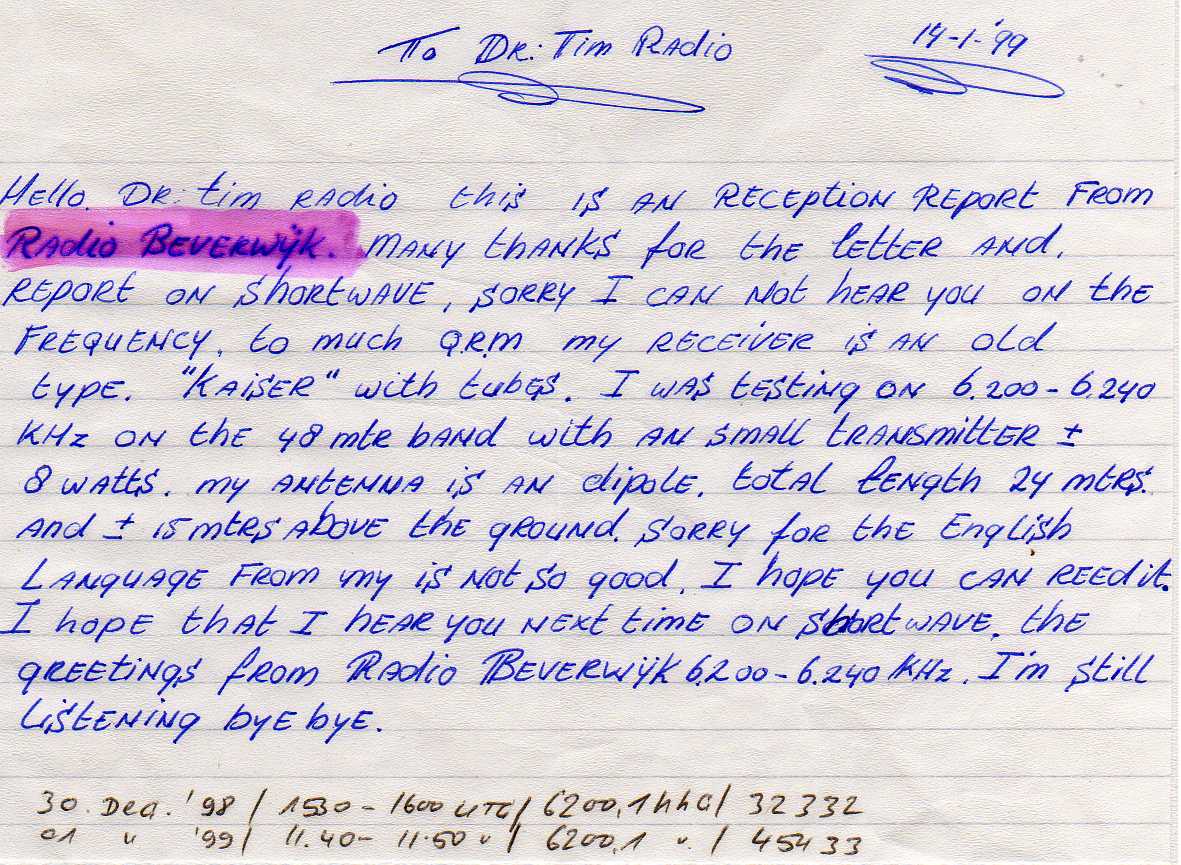 To DR: Tim Radio
14-1-'99
Hello. DR: tim RADio this is AN RECEPTION REPORT FROM
RADio BEVERWijK. MANY thANKS for the letter AND.
REPORT ON ShORtWAVE, SORRY I CAN Not hEAR you ON thE
FREQUENCY. to much Q.R.M my RECEiVER is AN old
type. "KAiSER" with tubes. I WAS tESTiNg ON 6.200-6.240
KHz ON the 48 mtr BAND with AN small tRANSmittER ±
8 WAttS. my ANtENNA iS AN dipole. totAL LENgth 24 mtRS.
And ± 15 mtRS AbOVE thE gROUND. SORRY foR the English
LANGUAgE FROM my is Not so good. I hope you CAN REEDit.
I hopE that I hEAR you NEXt time ON ShoRtWAVE. the
gREEtiNgS fROM RAdio BEVERWijK 6.200-6.240 KHz. I'm still
LiStENiNg byE byE.
30. Dea. '98 / 1530-1600 UTC / 6200,1 / 32332
01 " '99 / 11.40-11.50 " / 6200,1 " / 45433